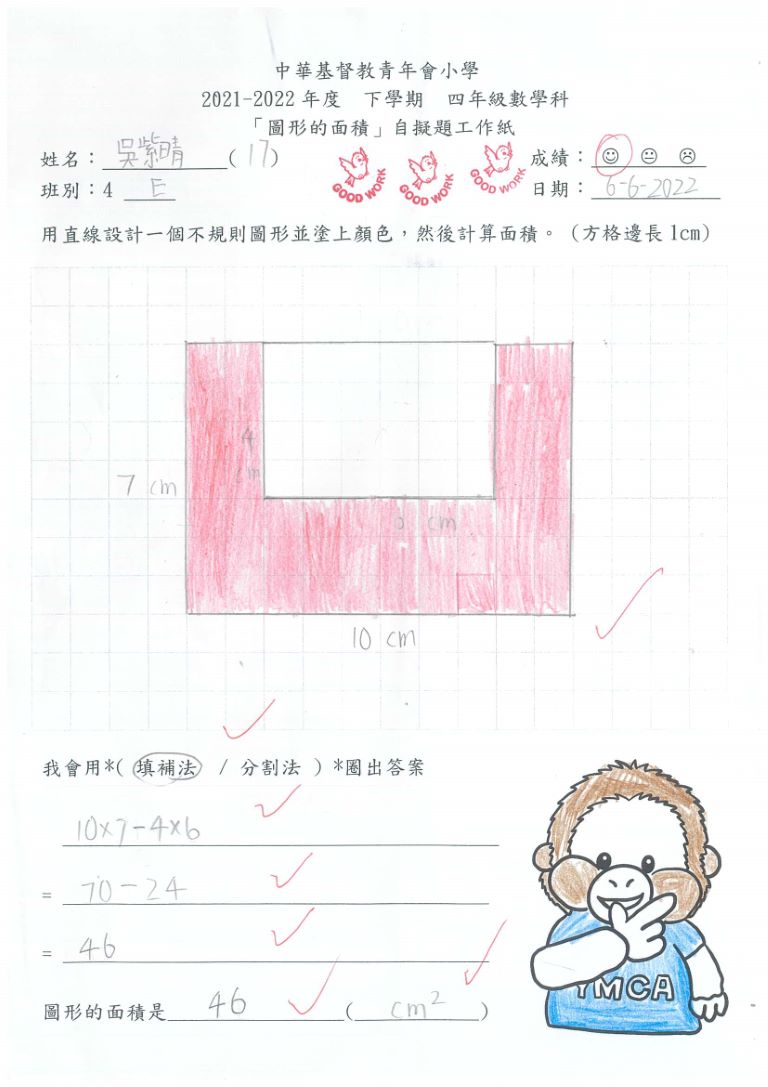 中華基督教青年會小學
2021-2022 年度 下學期 四年級數學科
「圖形的面積」自擬題工作紙
姓名：吳紫晴(17) 成績：
GOOD WORK GOOD WORK GOOD WORK
班別：4 E 日期：6-6-2022
用直線設計一個不規則圖形並塗上顏色，然後計算面積。(方格邊長 1cm)
4
cm
7 cm
cm
10 cm
我會用*( 填補法 / 分割法 ) *圈出答案
10×7-4×6
= 70-24
= 46
圖形的面積是 46 ( cm² )
YMCA